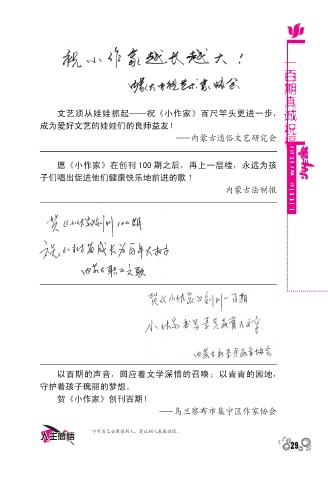 祝小作家越长越大！
内蒙古电视艺术家协会
文艺须从娃娃抓起——祝《小作家》百尺竿头更进一步，
成为爱好文艺的娃娃们的良师益友！
——内蒙古通俗文艺研究会
愿《小作家》在创刊 100 期之后，再上一层楼，永远为孩
子们唱出促进他们健康快乐地前进的歌！
内蒙古法制报
贺《小作家》创刊100期
祝小树苗成长为百年大树
内蒙古职工文联
贺《小作家》创刊一百期
小作家
内蒙古教育协会
以百期的声音，回应着文学深情的召唤；以青青的园地，
守护着孩子瑰丽的梦想。
贺《小作家》创刊百期！
——乌兰察布市集宁区作家协会
一百期真诚祝福
小作家
Little writer
人生感悟
宁可自己去原谅别人，莫让别人来原谅你。
29